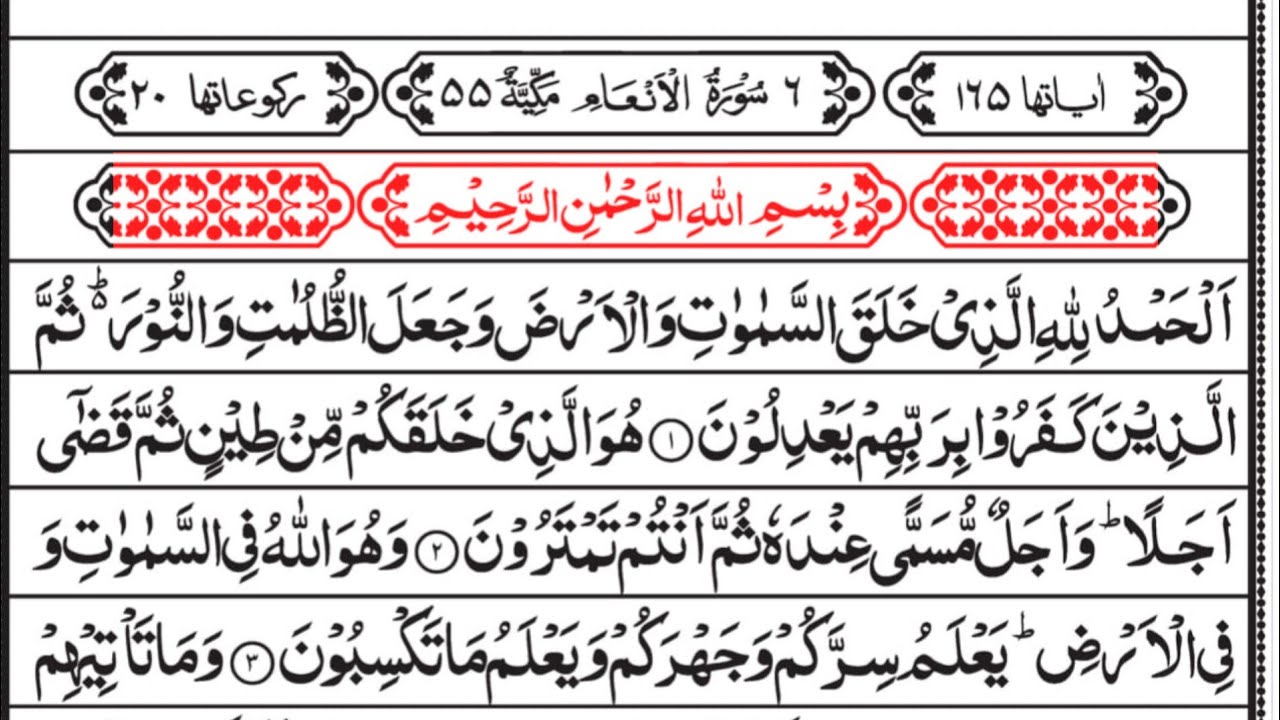 اٰیاتها ۱۶۵ ۶ سُوْرَةُ الْاَنْعَامِ مَکِّیَّةٌ ۵۵ رکوعاتها ۲۰
بِسْمِ اللّٰهِ الرَّحْمٰنِ الرَّحِیْمِ
اَلْحَمْدُ لِلّٰهِ الَّذِیْ خَلَقَ السَّمٰوٰتِ وَالْاَرْضَ وَجَعَلَ الظُّلُمٰتِ وَالنُّوْرَ ؕ۬ ثُمَّ
الَّذِیْنَ کَفَرُوْا بِرَبِّهِمْ یَعْدِلُوْنَ ۱ هُوَ الَّذِیْ خَلَقَکُمْ مِّنْ طِیْنٍ ثُمَّ قَضٰۤی
اَجَلًا ؕ وَاَجَلٌ مُّسَمًّی عِنْدَهٗ ثُمَّ اَنْتُمْ تَمْتَرُوْنَ ۲ وَهُوَ اللّٰهُ فِی السَّمٰوٰتِ وَ
فِی الْاَرْضِ ؕ یَعْلَمُ سِرَّکُمْ وَجَهْرَکُمْ وَیَعْلَمُ مَا تَکْسِبُوْنَ ۳ وَمَا تَاْتِیْهِمْ